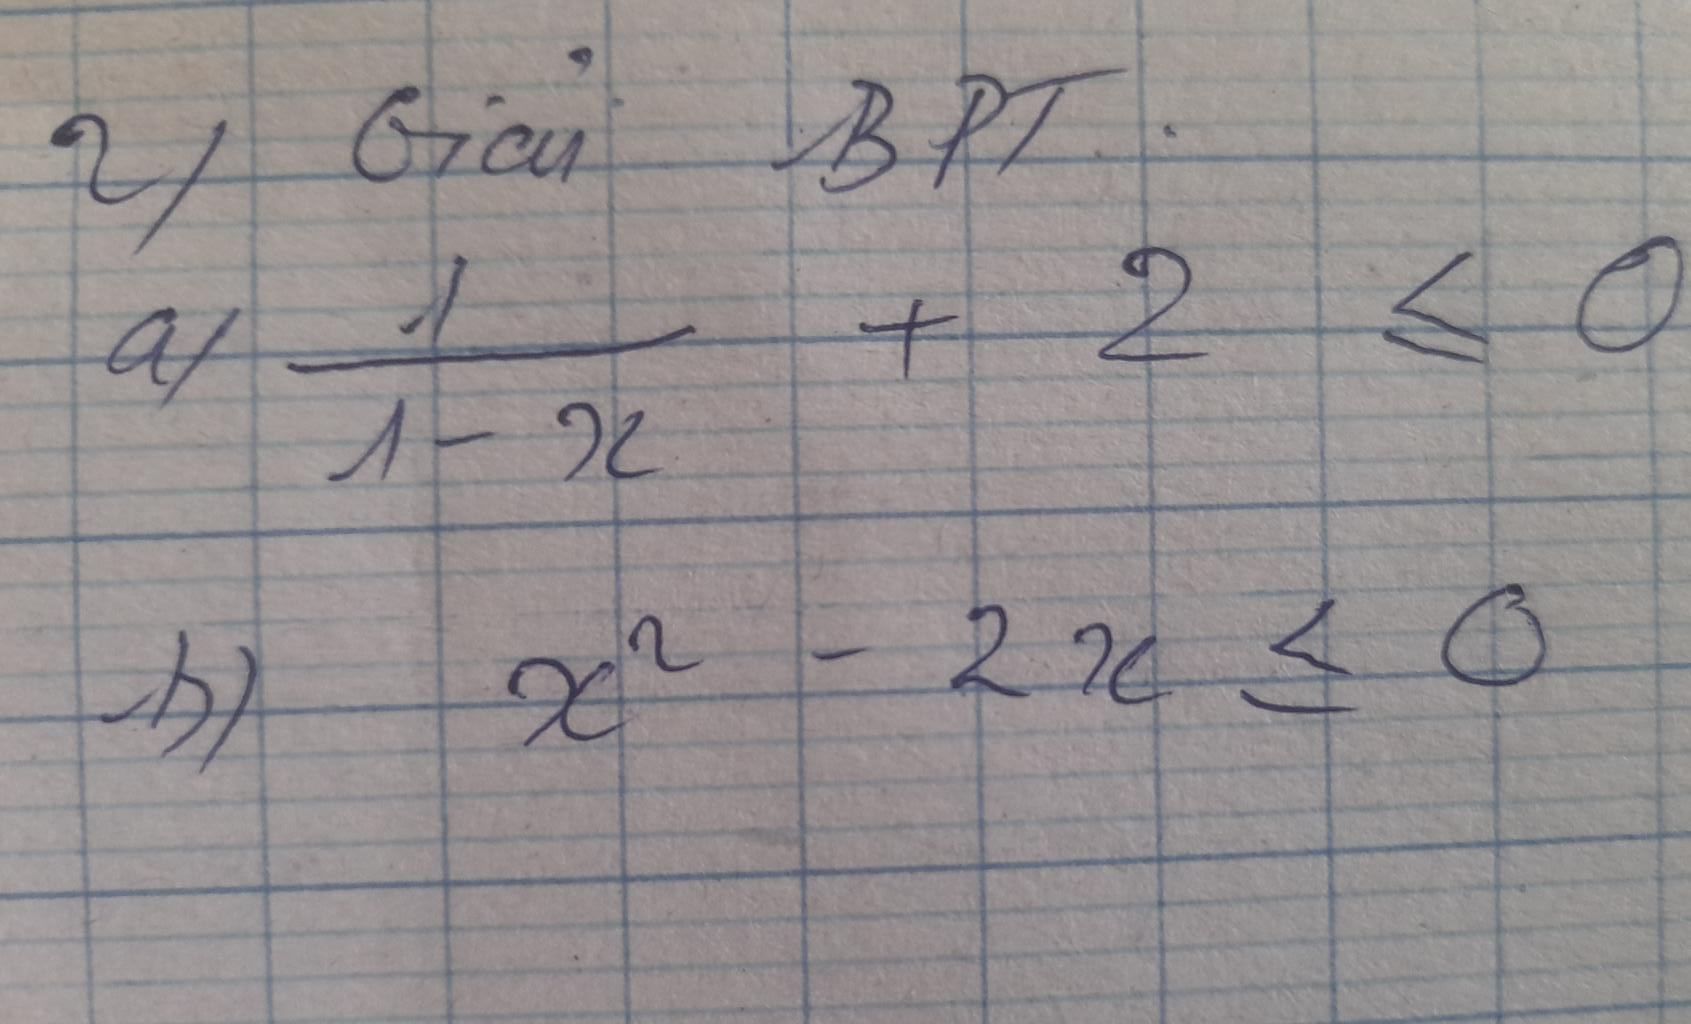 2/ Giải BPT.
a/ 1/(1-x) + 2 ≤ 0
b) x² - 2x ≤ 0